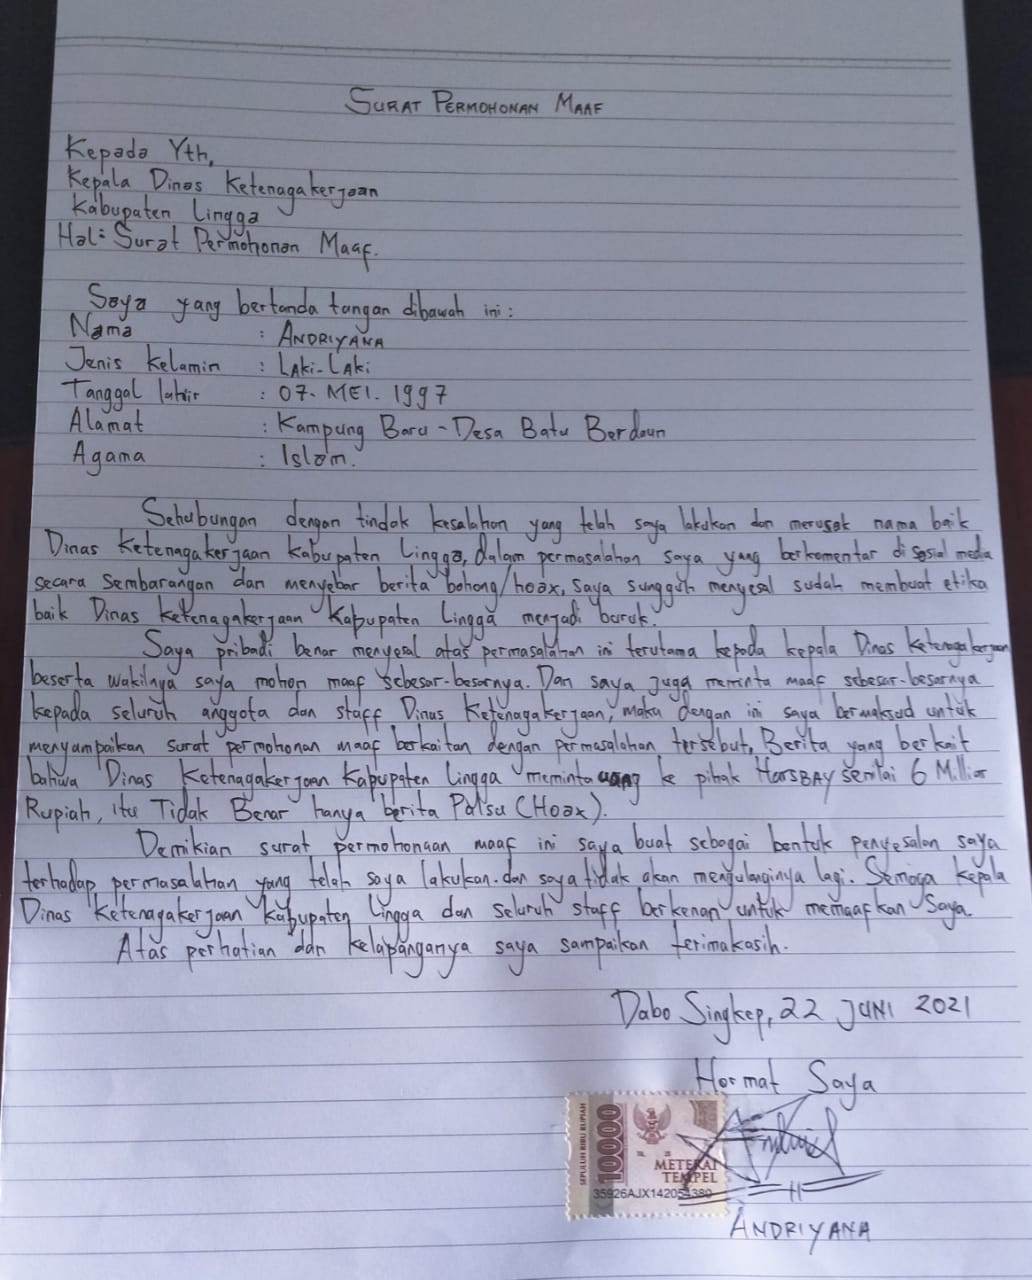 SURAT PERMOHONAN MAAF
Kepada Yth,
Kepala Dinas Ketenagakerjaan
Kabupaten Lingga
Hal: Surat Permohonan Maaf.
Saya yang bertanda tangan dibawah ini :
Nama : ANDRIYANA
Jenis Kelamin : LAKi-LAKi
Tanggal lahir : 07. MEI. 1997
Alamat : Kampung Baru - Desa Batu Berdaun
Agama : Islam.
Sehubungan dengan tindak kesalahan yang telah saya lakukan dan merusak nama baik
Dinas Ketenagakerjaan Kabupaten Lingga, dalam permasalahan saya yang berkomentar di sosial media
secara sembarangan dan menyebar berita bohong/hoax, saya sungguh menyesal sudah membuat etika
baik Dinas Ketenagakerjaan Kabupaten Lingga menjadi buruk.
Saya pribadi benar menyesal atas permasalahan ini terutama kepada kepala Dinas Ketenagakerjaan
beserta wakilnya saya mohon maaf sebesar-besarnya. Dan saya juga meminta maaf sebesar-besarnya
kepada seluruh anggota dan staff Dinas Ketenagakerjaan, maka dengan ini saya bermaksud untuk
menyampaikan surat permohonan maaf berkaitan dengan permasalahan tersebut, Berita yang berkait
bahwa Dinas Ketenagakerjaan Kabupaten Lingga meminta uang ke pihak HarsBAY senilai 6 Milliar
Rupiah, itu Tidak Benar hanya berita Palsu (Hoax).
Demikian surat permohonaan maaf ini saya buat sebagai bentuk penyesalan saya
terhadap permasalahan yang telah saya lakukan. dan saya tidak akan mengulanginya lagi. Semoga kepala
Dinas Ketenagakerjaan Kabupaten Lingga dan seluruh staff berkenan untuk memaafkan saya.
Atas perhatian dan kelapanganya saya sampaikan terimakasih.
Dabo Singkep, 22 JUNI 2021
Hormat Saya
SEPULUH RIBU RUPIAH
10000
METERAI
TEMPEL
35926AJX142054380
ANDRIYANA